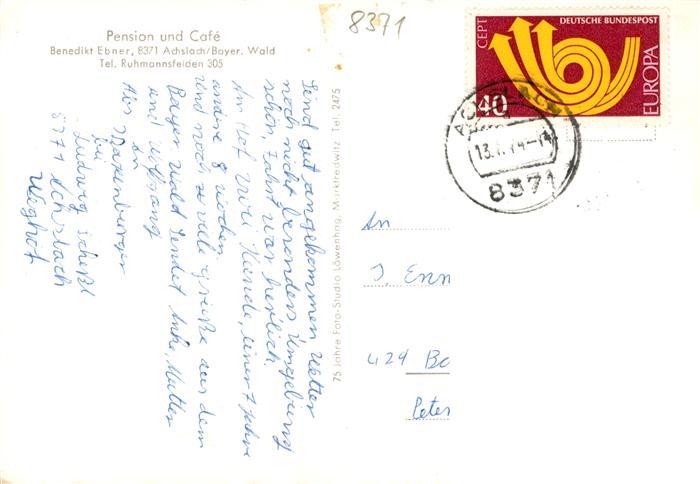 Pension und Café
Benedikt Ebner, 8371 Achslach/Bayer. Wald
Tel. Ruhmannsfelden 305
8371
CEPT
DEUTSCHE BUNDESPOST
EUROPA
40
8371
Sind gut angekommen Wetter
noch nicht besonders Umgebung
schön, Fahrt war herrlich.
Am Hof zwei Hunde, einer 7 Jahre
andere 8 Wochen.
Und noch so viele Grüße aus dem
Bayer Wald sendet Anke, Mutter
und Wolfgang
bei
Ludwig
8371 Achslach
Weghof
75 Jahre Foto-Studio Löwenhag, Marktredwitz Tel. 2475
An
J. Enn
424 Bo
Peter